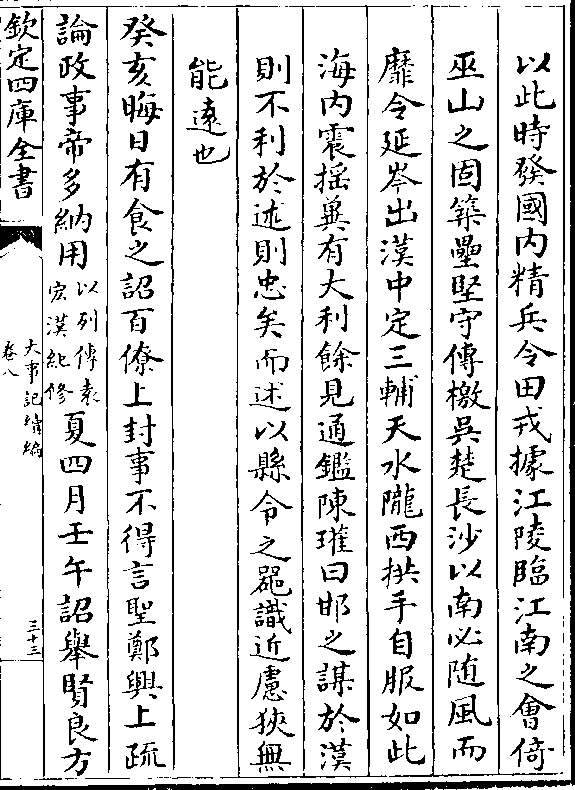 以此時發國内精兵令田戎據江陵臨江南之會倚
巫山之固築壘堅守傳檄吳楚長沙以南必随風而
靡令延岑出漢中定三輔天水隴西拱手自服如此
海内震揺兾有大利餘見通鑑陳瓘曰邯之謀於漢
則不利於述則忠矣而述以縣令之噐識近慮狹無
能遠也
癸亥晦日有食之詔百僚上封事不得言聖鄭興上疏
論政事帝多納用
以列傳袁
宏漢紀修
夏四月壬午詔舉賢良方
欽定四庫全書
大事記續編
卷八
三十三